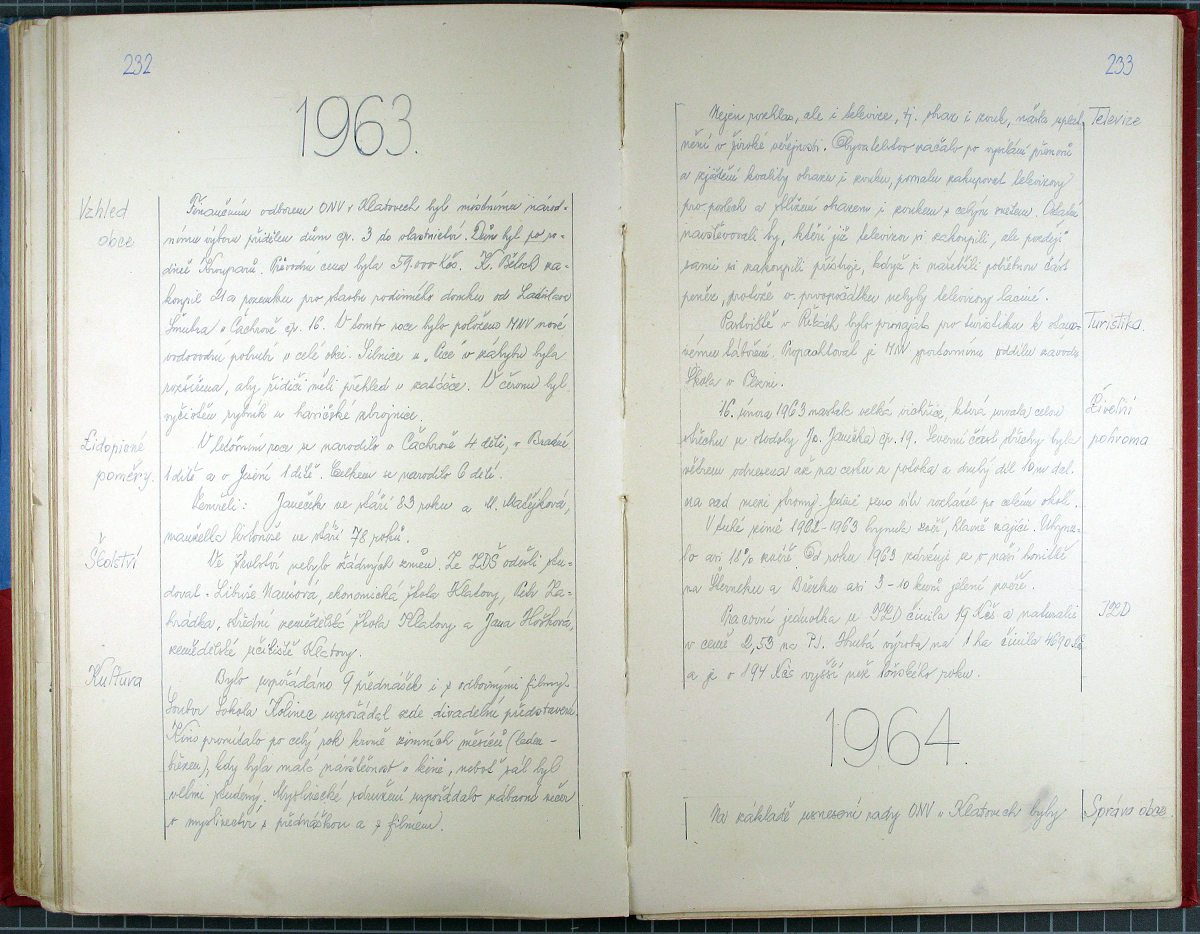 232
1963.
Vzhled
obce
Finančním odborem ONV v Klatovech byl místnímu národ-
nímu výboru přidělen dům čp. 3 do vlastnictví. Dům byl po ro-
dině Krouparů. Převodní cena byla 59.000 Kčs. K. Běloch za-
koupil 21a pozemku pro stavbu rodinného domku od Ladislava
v Čachrově čp. 16. V tomto roce bylo položeno MNV nové
vodovodní potrubí v celé obci. Silnice u „Pice" v záhybu byla
rozšířena, aby řidiči měli přehled v zatáčce. V červnu byl
vyčištěn rybník u hasičské zbrojnice.
Lidopisné
poměry.
V letošním roce se narodilo v Čachrově 4 děti, v
1 dítě a v Jesení 1 dítě. Celkem se narodilo 6 dětí.
Zemřeli: Janeček ve stáří 83 roků a M. Matějková,
manželka ve stáří 78 roků.
Školství
Ve školství nebylo žádných změn. Ze ZDŠ odešli stu-
dovat - Libuše ekonomická škola Klatovy, Petr Za-
hrádka, střední zemědělská škola Klatovy a Jana Hošková,
zemědělské učiliště Klatovy.
Kultura
Bylo uspořádáno 9 přednášek i s odbornými filmy.
Soubor Sokola Kolinec uspořádal zde divadelní představení.
Kino promítalo po celý rok kromě zimních měsíců (leden -
březen), kdy byla malá návštěvnost v kině, neboť sál byl
velmi studený. Myslivecké sdružení uspořádalo zábavní večer
o myslivectví s přednáškou a s filmem.
233
Nejen rozhlas, ale i televize, tj. obraz i zvuk, našla uplat-
Televize
nění v široké veřejnosti. Obyvatelstvo začalo po vysílání přenosů
a zjištění kvality obrazu i zvuku, pomalu zakupovat televizory
pro poslech a sblížení obrazem i zvukem s celým světem. Ostatní
navštěvovali ty, kteří již televizor si zakoupili, ale později
sami si zakoupili přístroje, když si našetřili potřebnou část
peněz, protože v prvopočátku nebyly televizory laciné.
Pastviště v bylo pronajato pro turistiku k stano-
Turistika.
vému táboření. Propachtoval je MNV sportovnímu oddílu závodu
Škoda v Plzni.
16. února 1963 nastala velká vichřice, která srvala celou
Živelní
střechu u stodoly Jo. Janečka čp. 19. Severní část střechy byla
pohroma
větrem odnesena až na cestu u potoka a druhý díl 10 m dal.
na sad mezi stromy. Jedině seno vítr rozházel po celém okolí.
V tuhé zimě 1962-1963 hynula zvěř, hlavně zajíci. Uhynu-
lo asi 18% zvěře. Od roku 1963 zdržuje se v naší honitbě
na a Březku asi 3-10 kusů jelení zvěře.
Pracovní jednotka u JZD činila 19 Kčs a naturalie
JZD
v ceně 2,53 na PJ. Hrubá výroba na 1 ha činila 4690 Kčs
a je o 894 Kčs vyšší než loňského roku.
1964.
Na základě usnesení rady ONV v Klatovech byly
Správa obce.